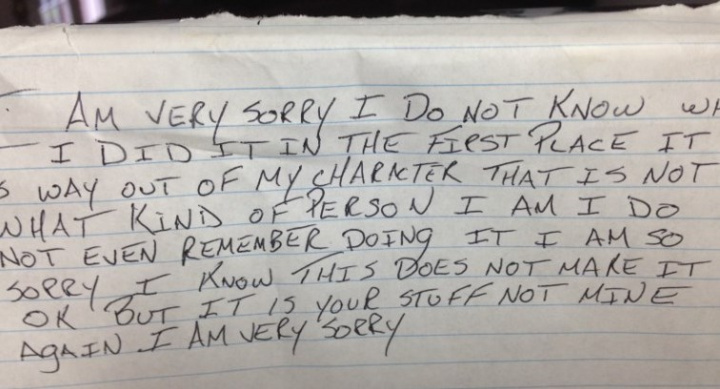 AM VERY SORRY I DO NOT KNOW
I DID IT IN THE FIRST PLACE IT
WAY OUT OF MY CHARACTER THAT IS NOT
WHAT KIND OF PERSON I AM I DO
NOT EVEN REMEMBER DOING IT I AM SO
SORRY I KNOW THIS DOES NOT MAKE IT
OK BUT IT IS YOUR STUFF NOT MINE
AGAIN I AM VERY SORRY